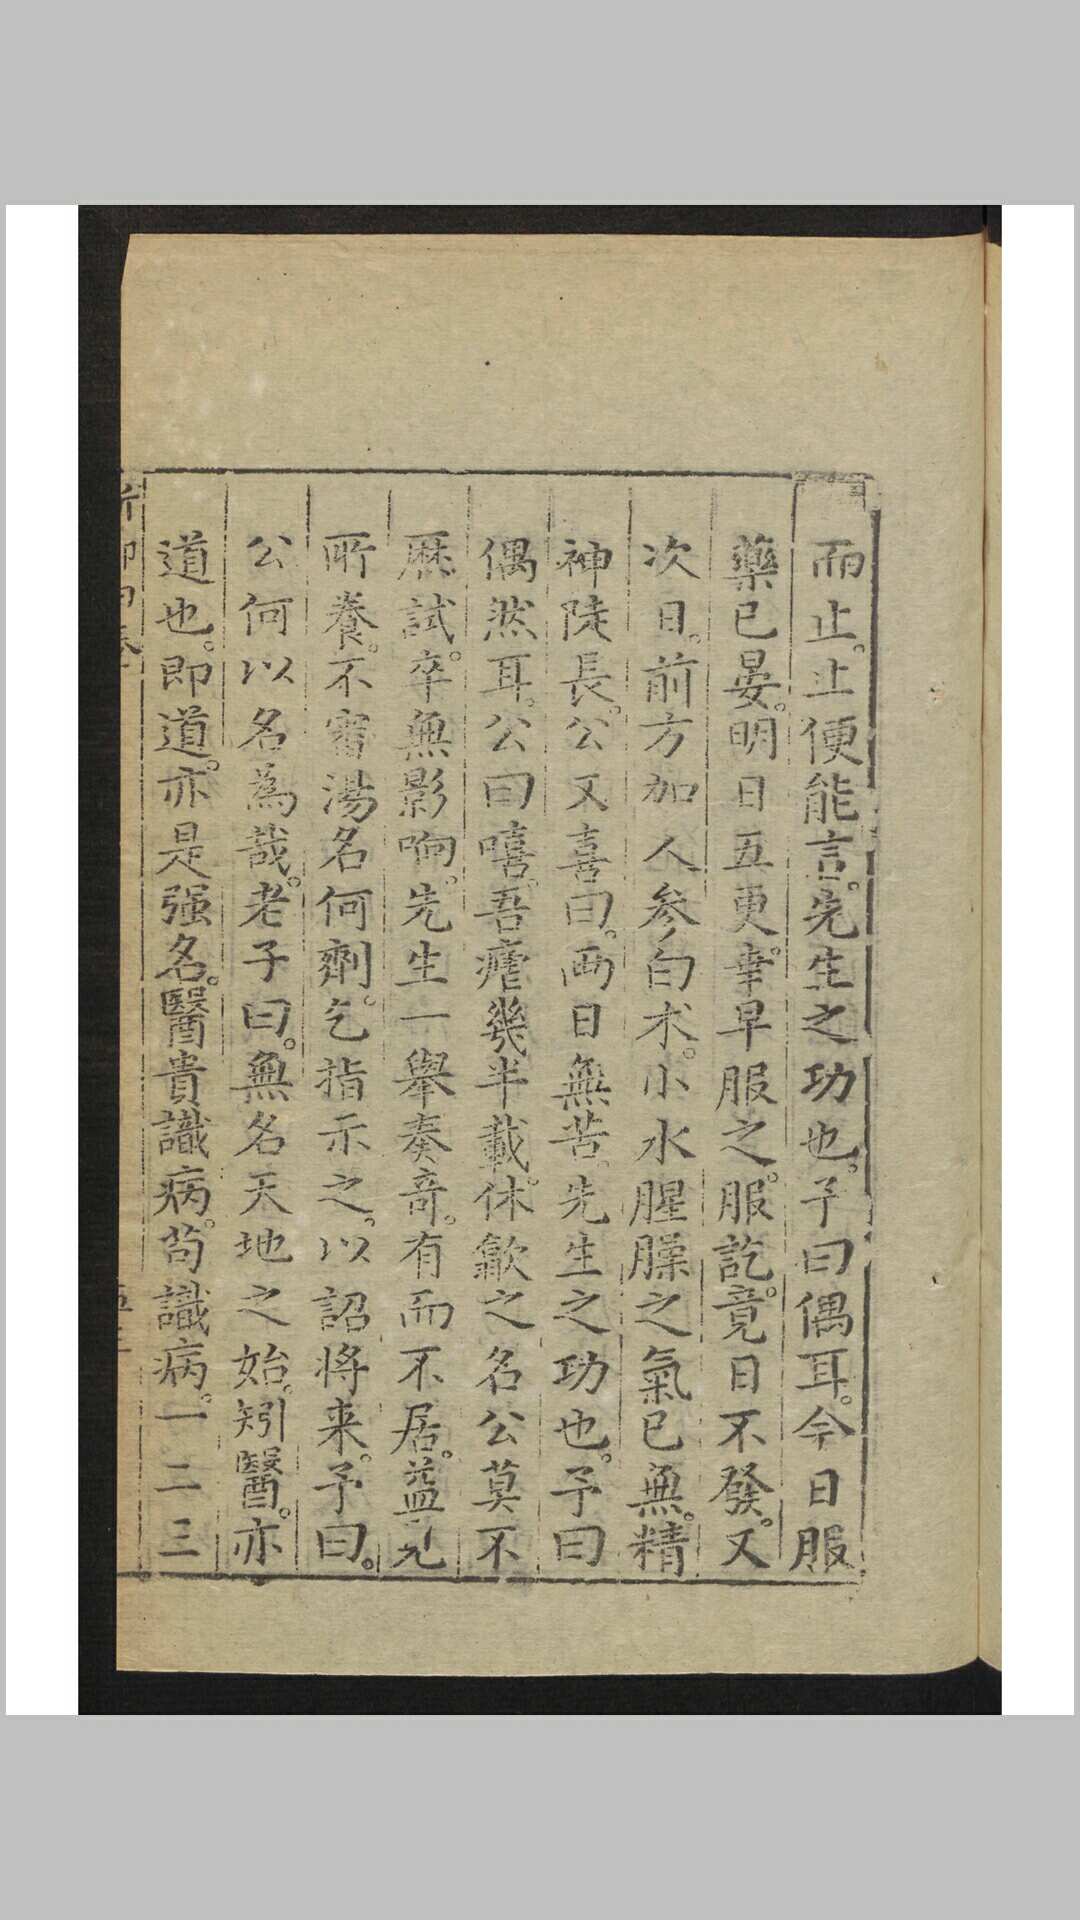 而止。止便能言。先生之功也。予曰偶耳。今日服
藥已晏。明日五更。幸早服之。服訖。竟日不發。又
次日。前方加人參白朮。小水腥臊之氣已無。精
神陡長。公又喜曰。两日無苦。先生之功也。予曰
偶然耳。公曰嘻。吾瘧幾半載。休歙之名公莫不
厯試。卒無影响。先生一舉奏奇。有而不居。益見
所養。不審湯名何劑。乞指示之。以詔將来。予曰。
公何以名為哉。老子曰。無名天地之始。矧醫。亦
道也。即道。亦是强名。醫貴識病。苟識病。一二三